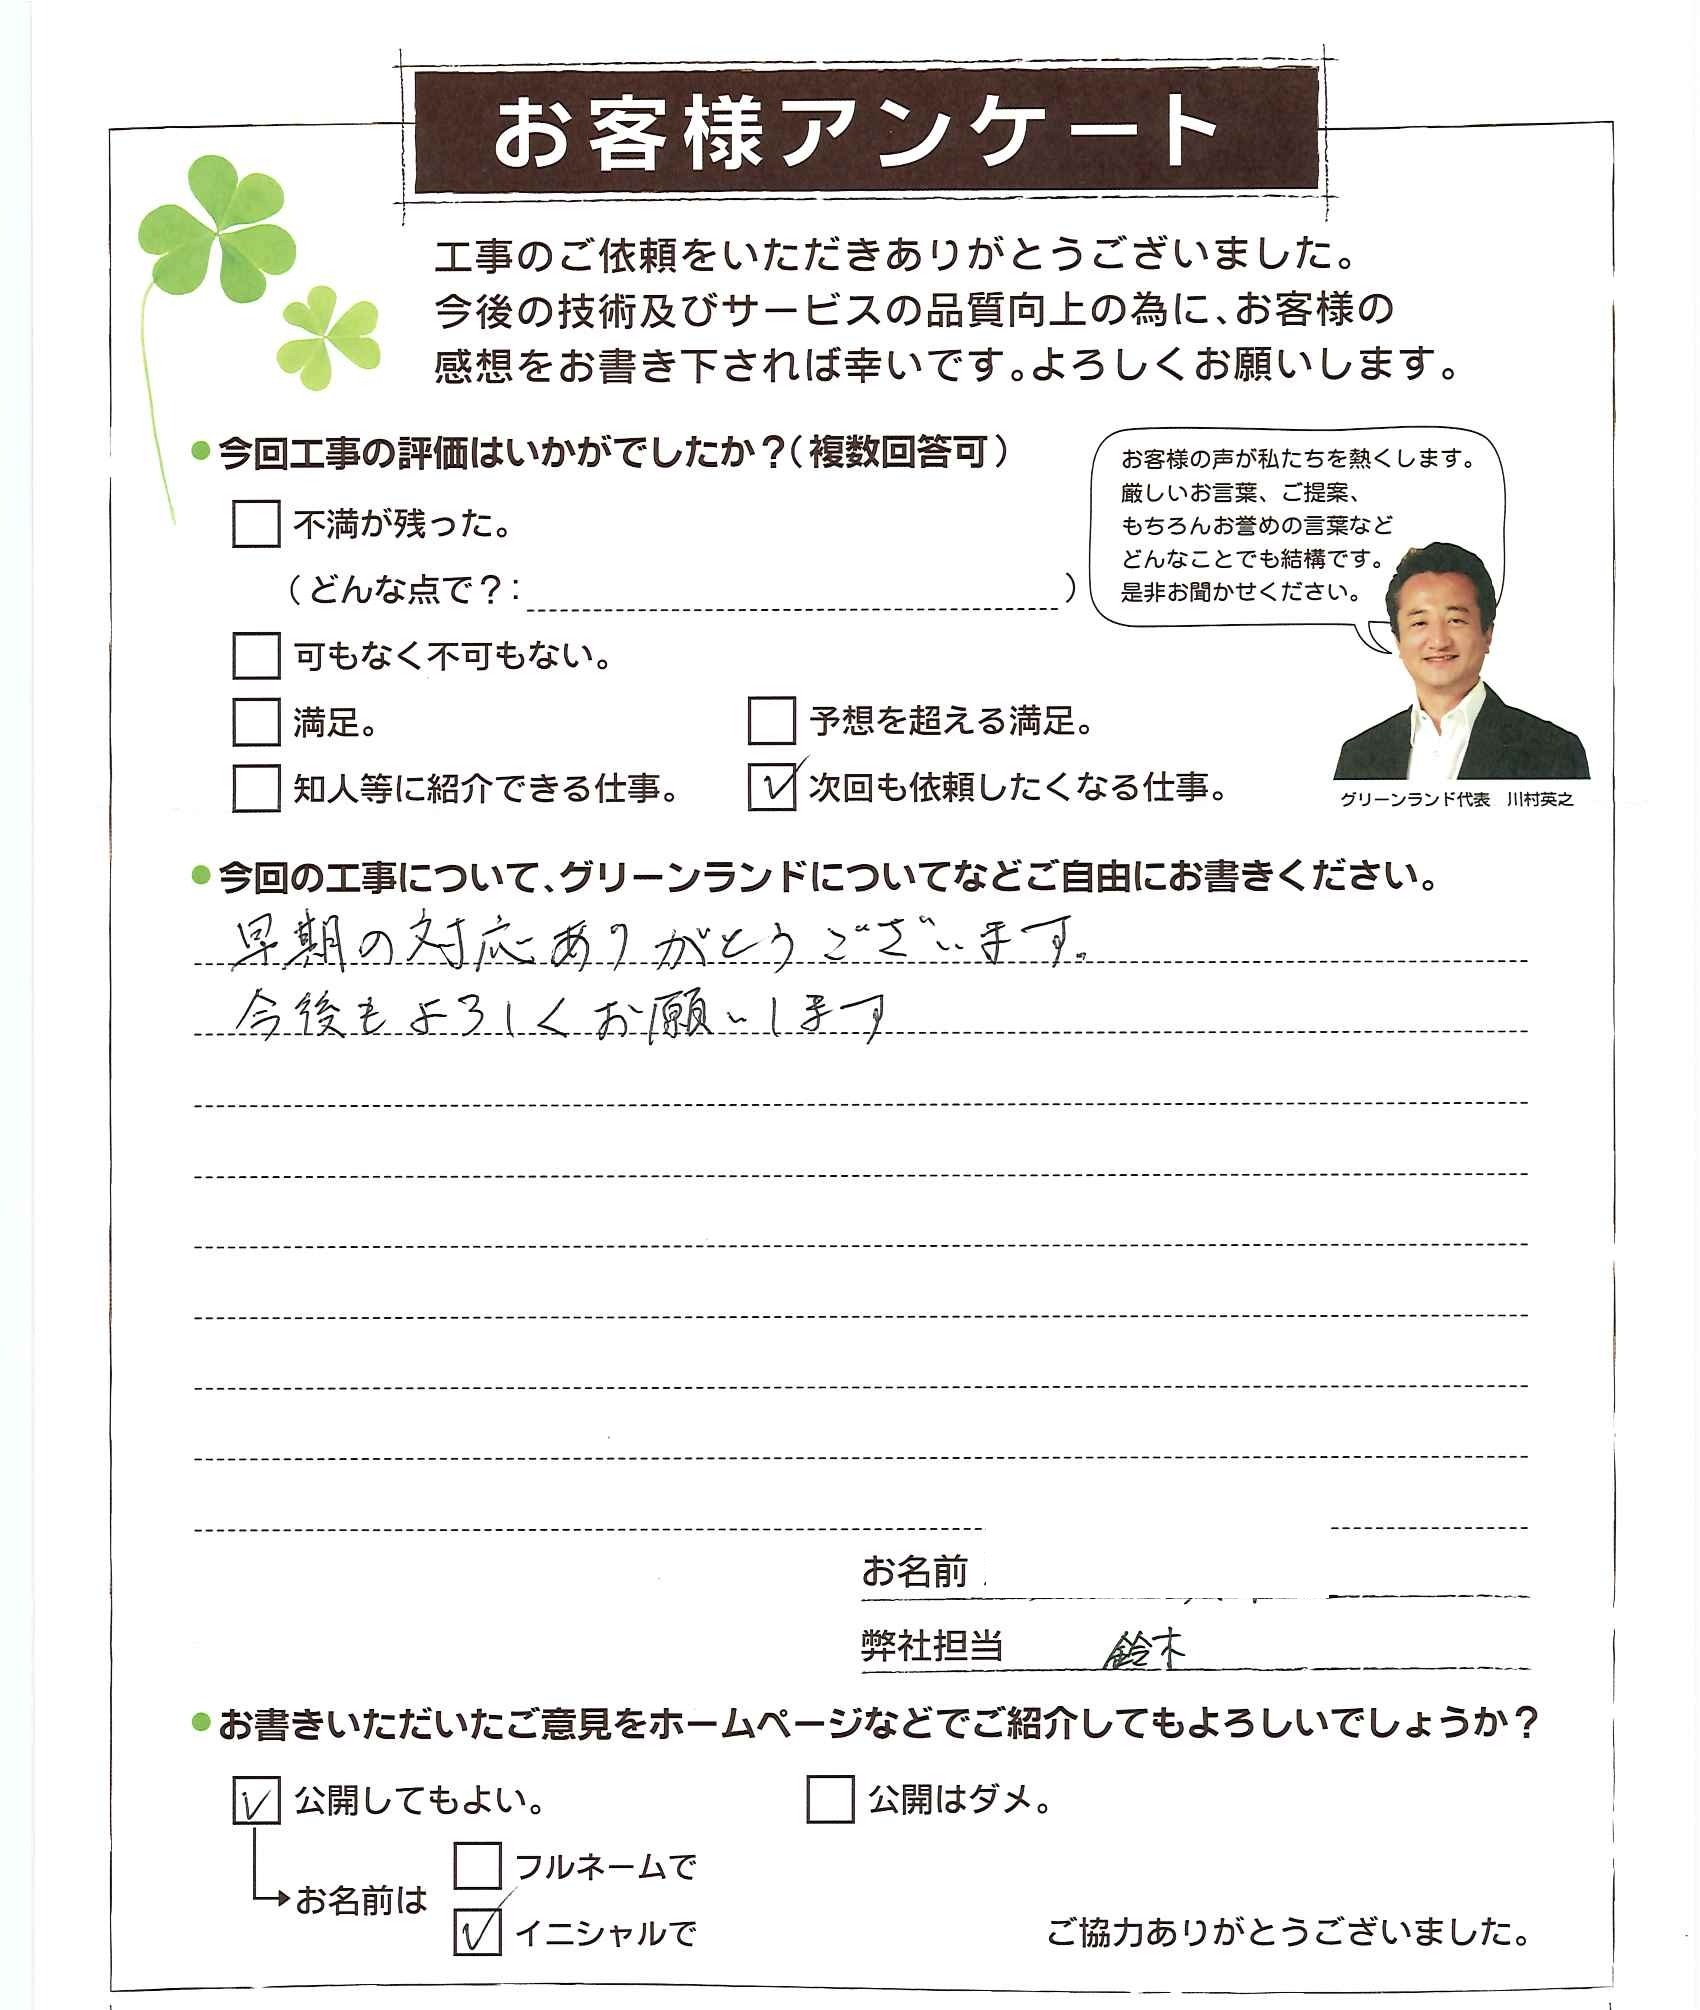 お客様アンケート
工事のご依頼をいただきありがとうございました。
今後の技術及びサービスの品質向上の為に、お客様の
感想をお書き下されば幸いです。よろしくお願いします。
●今回工事の評価はいかがでしたか？（複数回答可）
不満が残った。
（どんな点で？： ）
可もなく不可もない。
満足。 予想を超える満足。
知人等に紹介できる仕事。 ✓ 次回も依頼したくなる仕事。
お客様の声が私たちを熱くします。
厳しいお言葉、ご提案、
もちろんお誉めの言葉など
どんなことでも結構です。
是非お聞かせください。
グリーンランド代表 川村英之
●今回の工事について、グリーンランドについてなどご自由にお書きください。
早期の対応ありがとうございます。
今後もよろしくお願いします
お名前
弊社担当 鈴木
●お書きいただいたご意見をホームページなどでご紹介してもよろしいでしょうか？
✓ 公開してもよい。 公開はダメ。
お名前は
フルネームで
✓ イニシャルで
ご協力ありがとうございました。